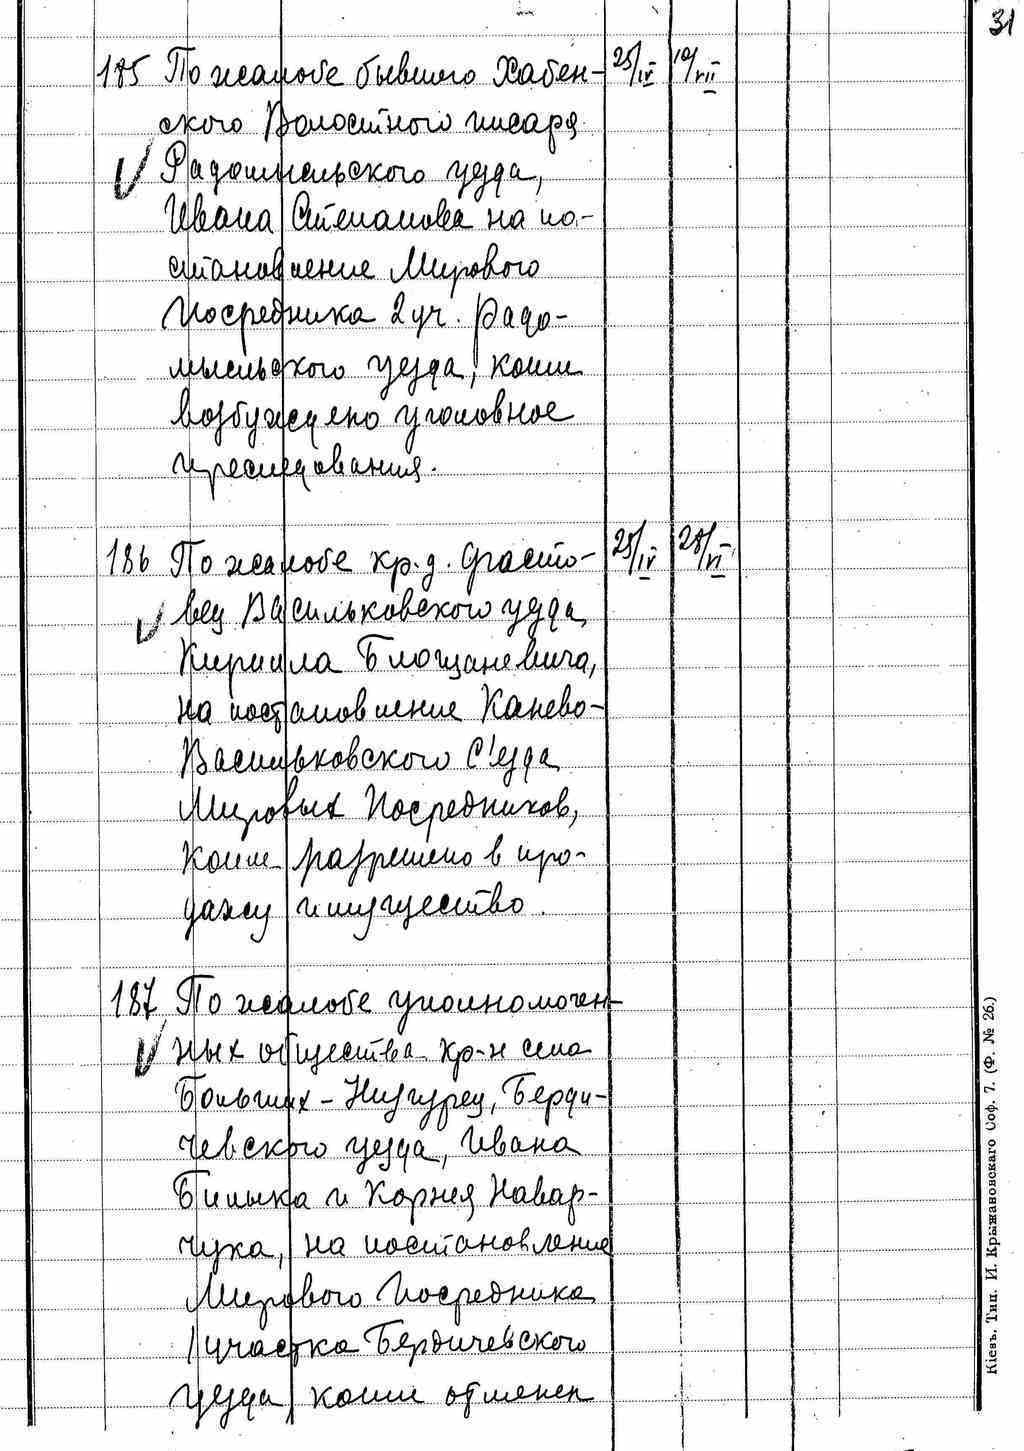 31
185 По жалобе бывшего Хабен- 25/IV 10/VII
ского Волостного писаря
Радомысльского уезда,
Ивана Степанова на по-
становление Мирового
Посредника 2 уч. Радо-
мысльского уезда, коим
возбуждено уголовное
преследования.
186 По жалобе кр. д. Фасто- 25/IV 28/VI
вец Васильковского уезда,
Кирилла Блощаневича,
на постановление Канево-
Васильковского С'езда
Мировых Посредников,
коим разрешено в про-
дажу имущество.
187 По жалобе уполномочен-
ных общества кр-н села
Больших-Низгурец, Берди-
чевского уезда, Ивана
Билыка и Корнея Навар-
чука, на постановление
Мирового Посредника
1 участка Бердичевского
уезда коим отменен
Кіевъ. Тип. И. Крыжановскаго Соф. 7. (Ф. № 26.)